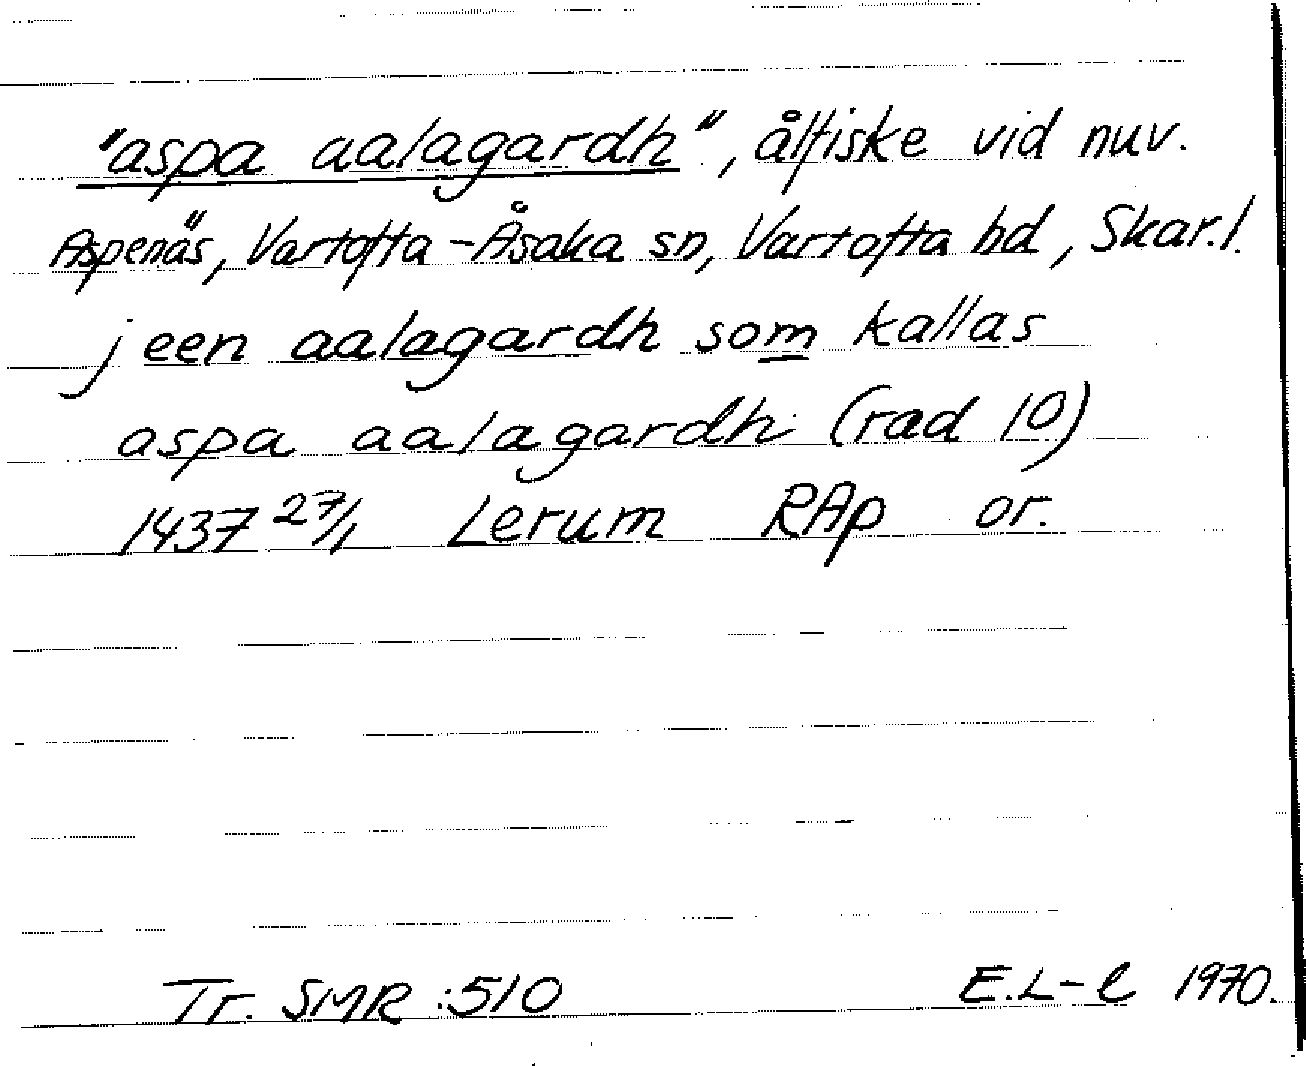 "aspa aalagardh", ålfiske vid nuv.
Aspenäs, Vartofta-Åsaka sn, Vartofta hd, Skar.l.
j een aalagardh som kallas
aspa aalagardh (rad 10)
1437 27/1 Lerum RAp or.
Tr. SMR :510 E.L-l 1970.